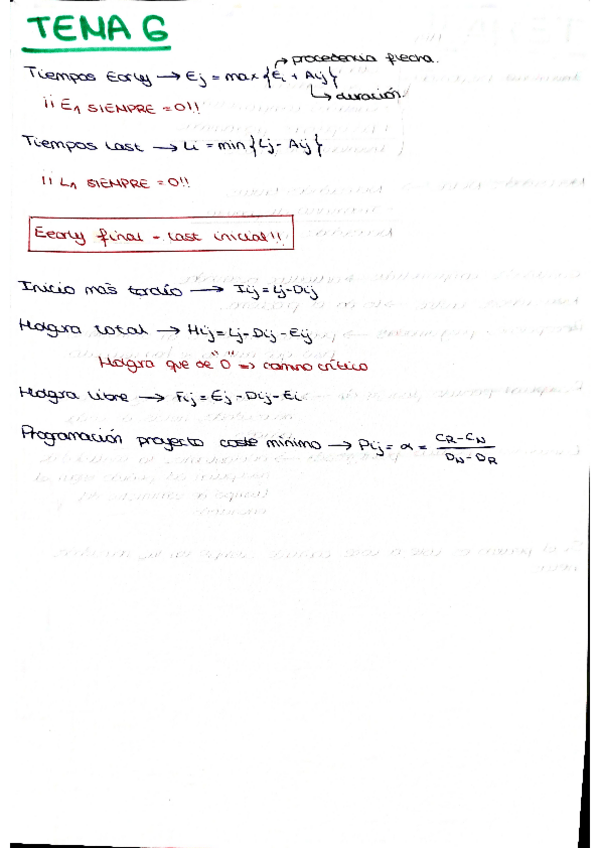 TEMA 6
procedencia flecha.
Tiempos Early → Ej = max {Ei + Aij}
duración.
¡¡ E1 SIEMPRE = 0!!
Tiempos Last → Li = min {Lj - Aij}
¡¡ L1 SIEMPRE = 0!!
Eearly final = Last inicial!!
Inicio más tardío → Iij = Lj - Dij
Holgura total → Hij = Lj - Dij - Eij
Holgura que de "0" => camino crítico
Holgura libre → Fij = Ej - Dij - Ei
Programación proyecto coste mínimo → Pij = α = CR - CN / DN - DR